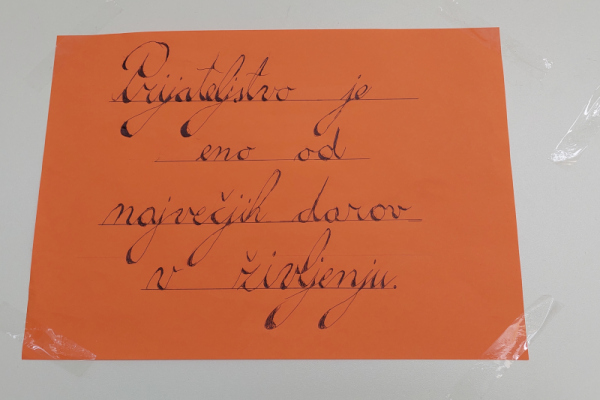 Prijateljstvo je
eno od
največjih darov
v življenju.